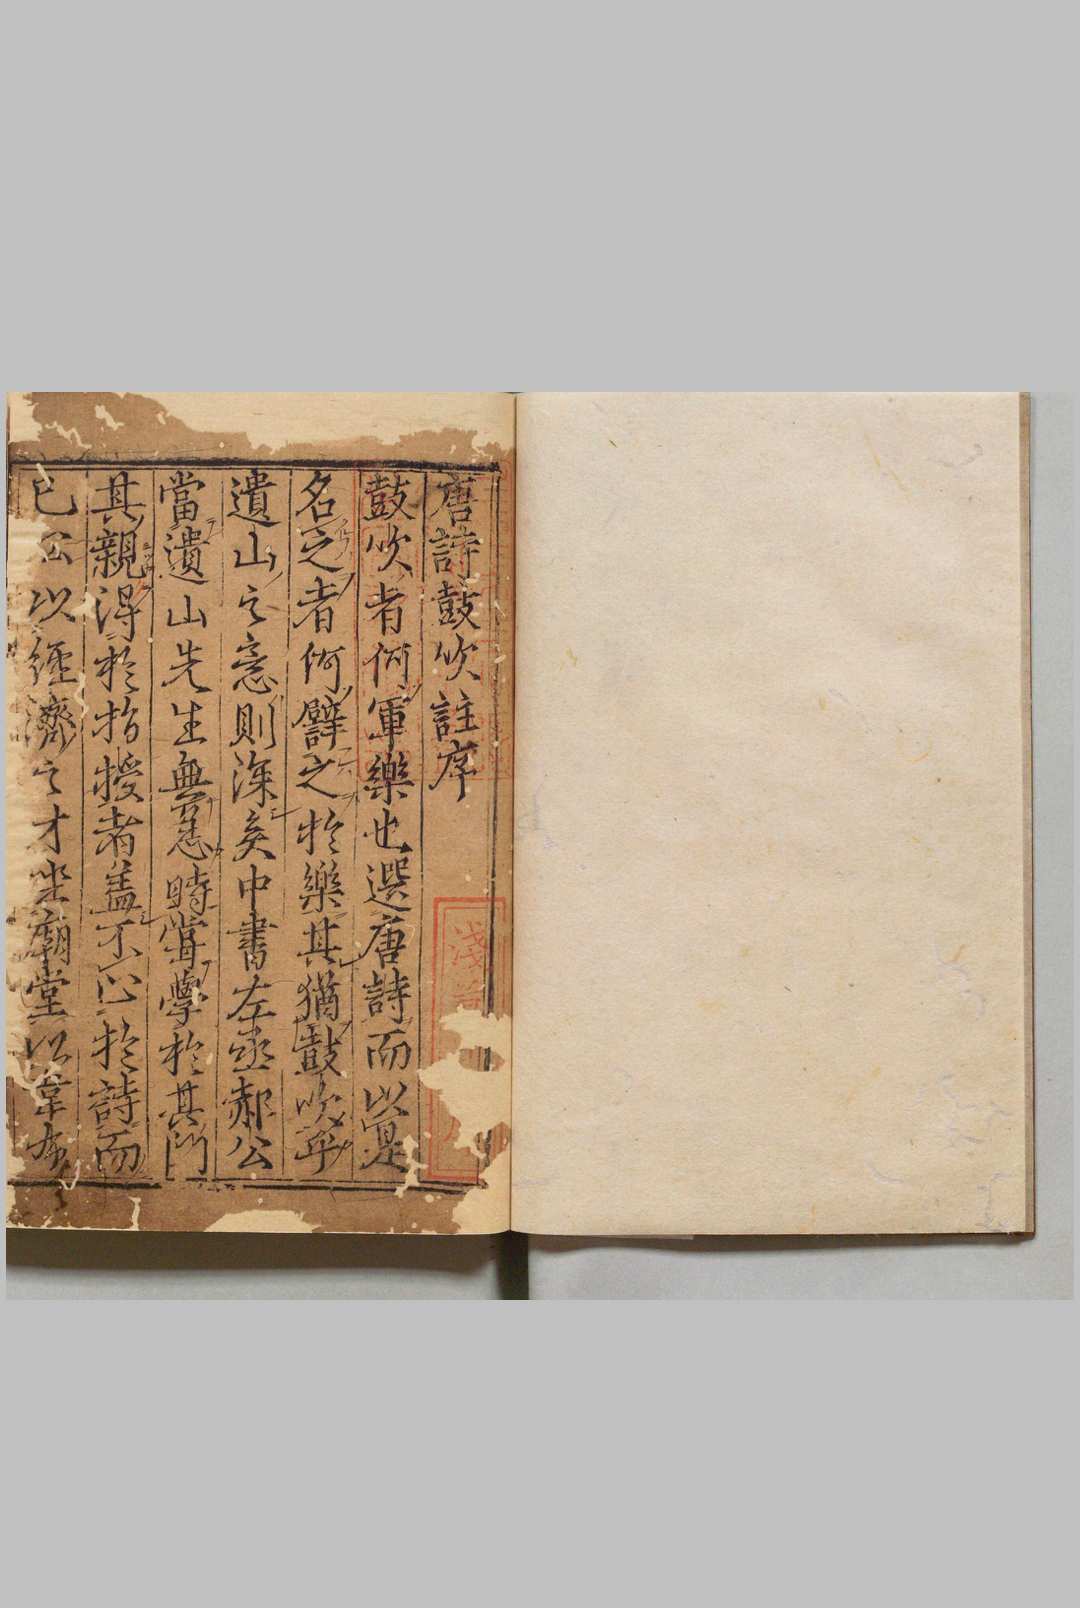 唐詩鼓吹註序
鼓吹者何軍樂也選唐詩而以是
名之者何譬之於樂其猶鼓吹乎
遺山之意則深矣中書左丞郝公
當遺山先生無恙時嘗學於其門
其親得於指授者盖不止於詩而
已公以經濟之才坐廟堂以韋布
淺